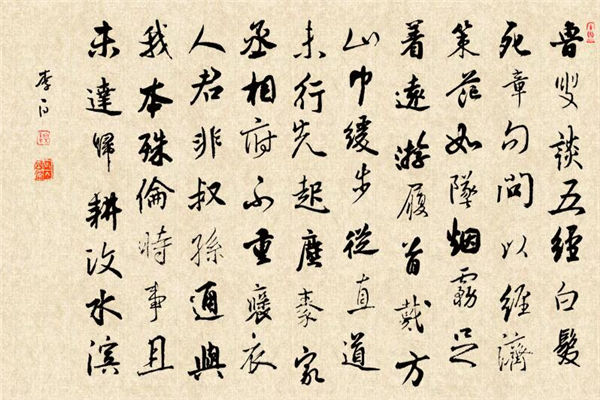 魯叟談五經白髮
死章句問以經濟
策茫如墜烟霧足
著遠游履首戴方
山巾緩步從直道
未行先起塵秦家
丞相府不重褒衣
人君非叔孫通與
我本殊倫時事且
未達歸耕汶水滨
李白